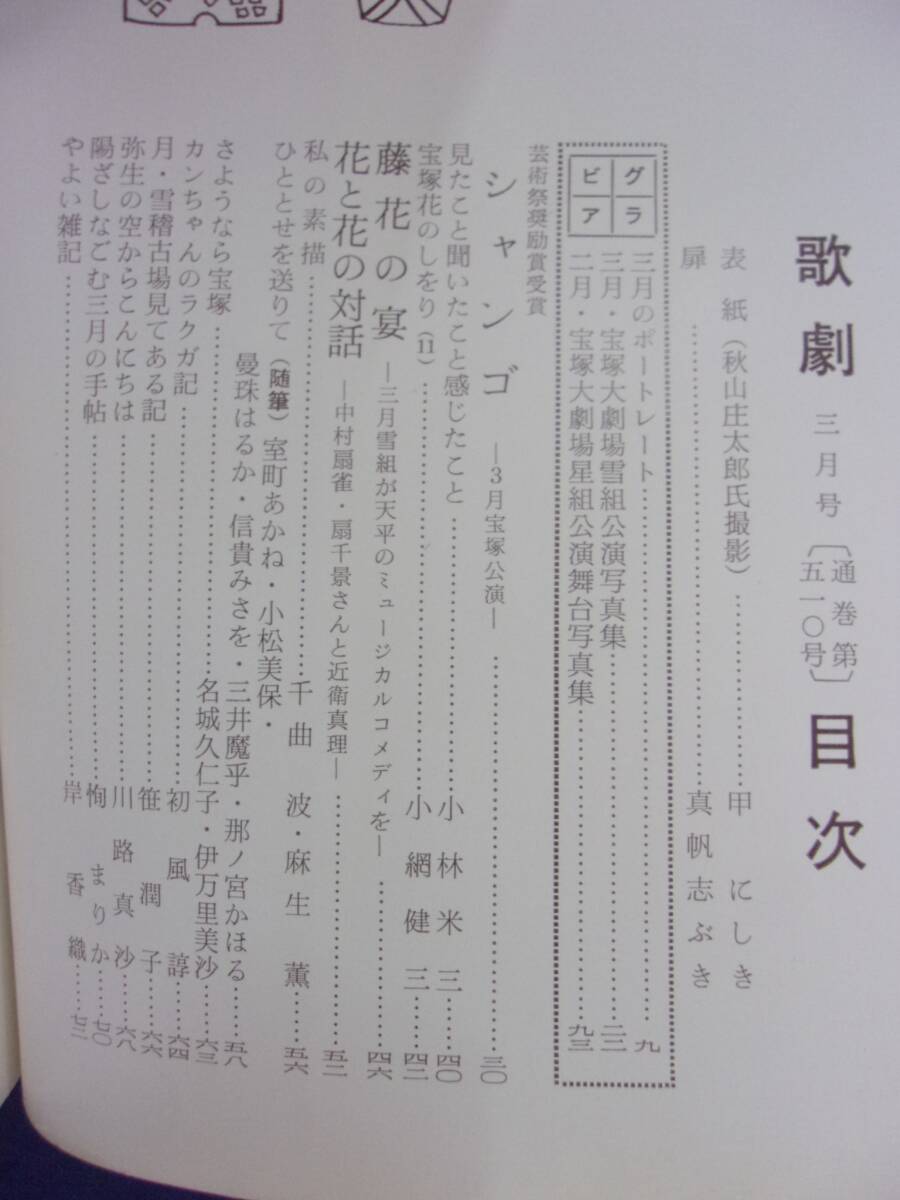 歌劇 三月号〔通巻第五一〇号〕目次
表紙（秋山庄太郎氏撮影）……甲にしき
扉……真帆志ぶき
グラビア
三月のポートレート……九
三月・宝塚大劇場雪組公演写真集……二二
二月・宝塚大劇場星組公演舞台写真集……九三
芸術祭奨励賞受賞
シャンゴ ―3月宝塚公演―……三〇
見たこと聞いたこと感じたこと……小林米三……四〇
宝塚花のしをり(11)……小網健三……四二
藤花の宴 ―三月雪組が天平のミュージカルコメディを―……四六
花と花の対話 ―中村扇雀・扇千景さんと近衛真理―……五二
私の素描……千曲波・麻生薫……五六
ひととせを送りて（随筆）室町あかね・小松美保・
曼珠はるか・信貴みさを・三井魔乎・那ノ宮かほる……五八
さようなら宝塚……名城久仁子・伊万里美沙……六三
カンちゃんのラクガ記……初風諄……六四
月・雪稽古場見てある記……笹潤子……六六
弥生の空からこんにちは……川路真沙……六八
陽ざしなごむ三月の手帖……恂まりか……七〇
やよい雑記……岸香織……七二